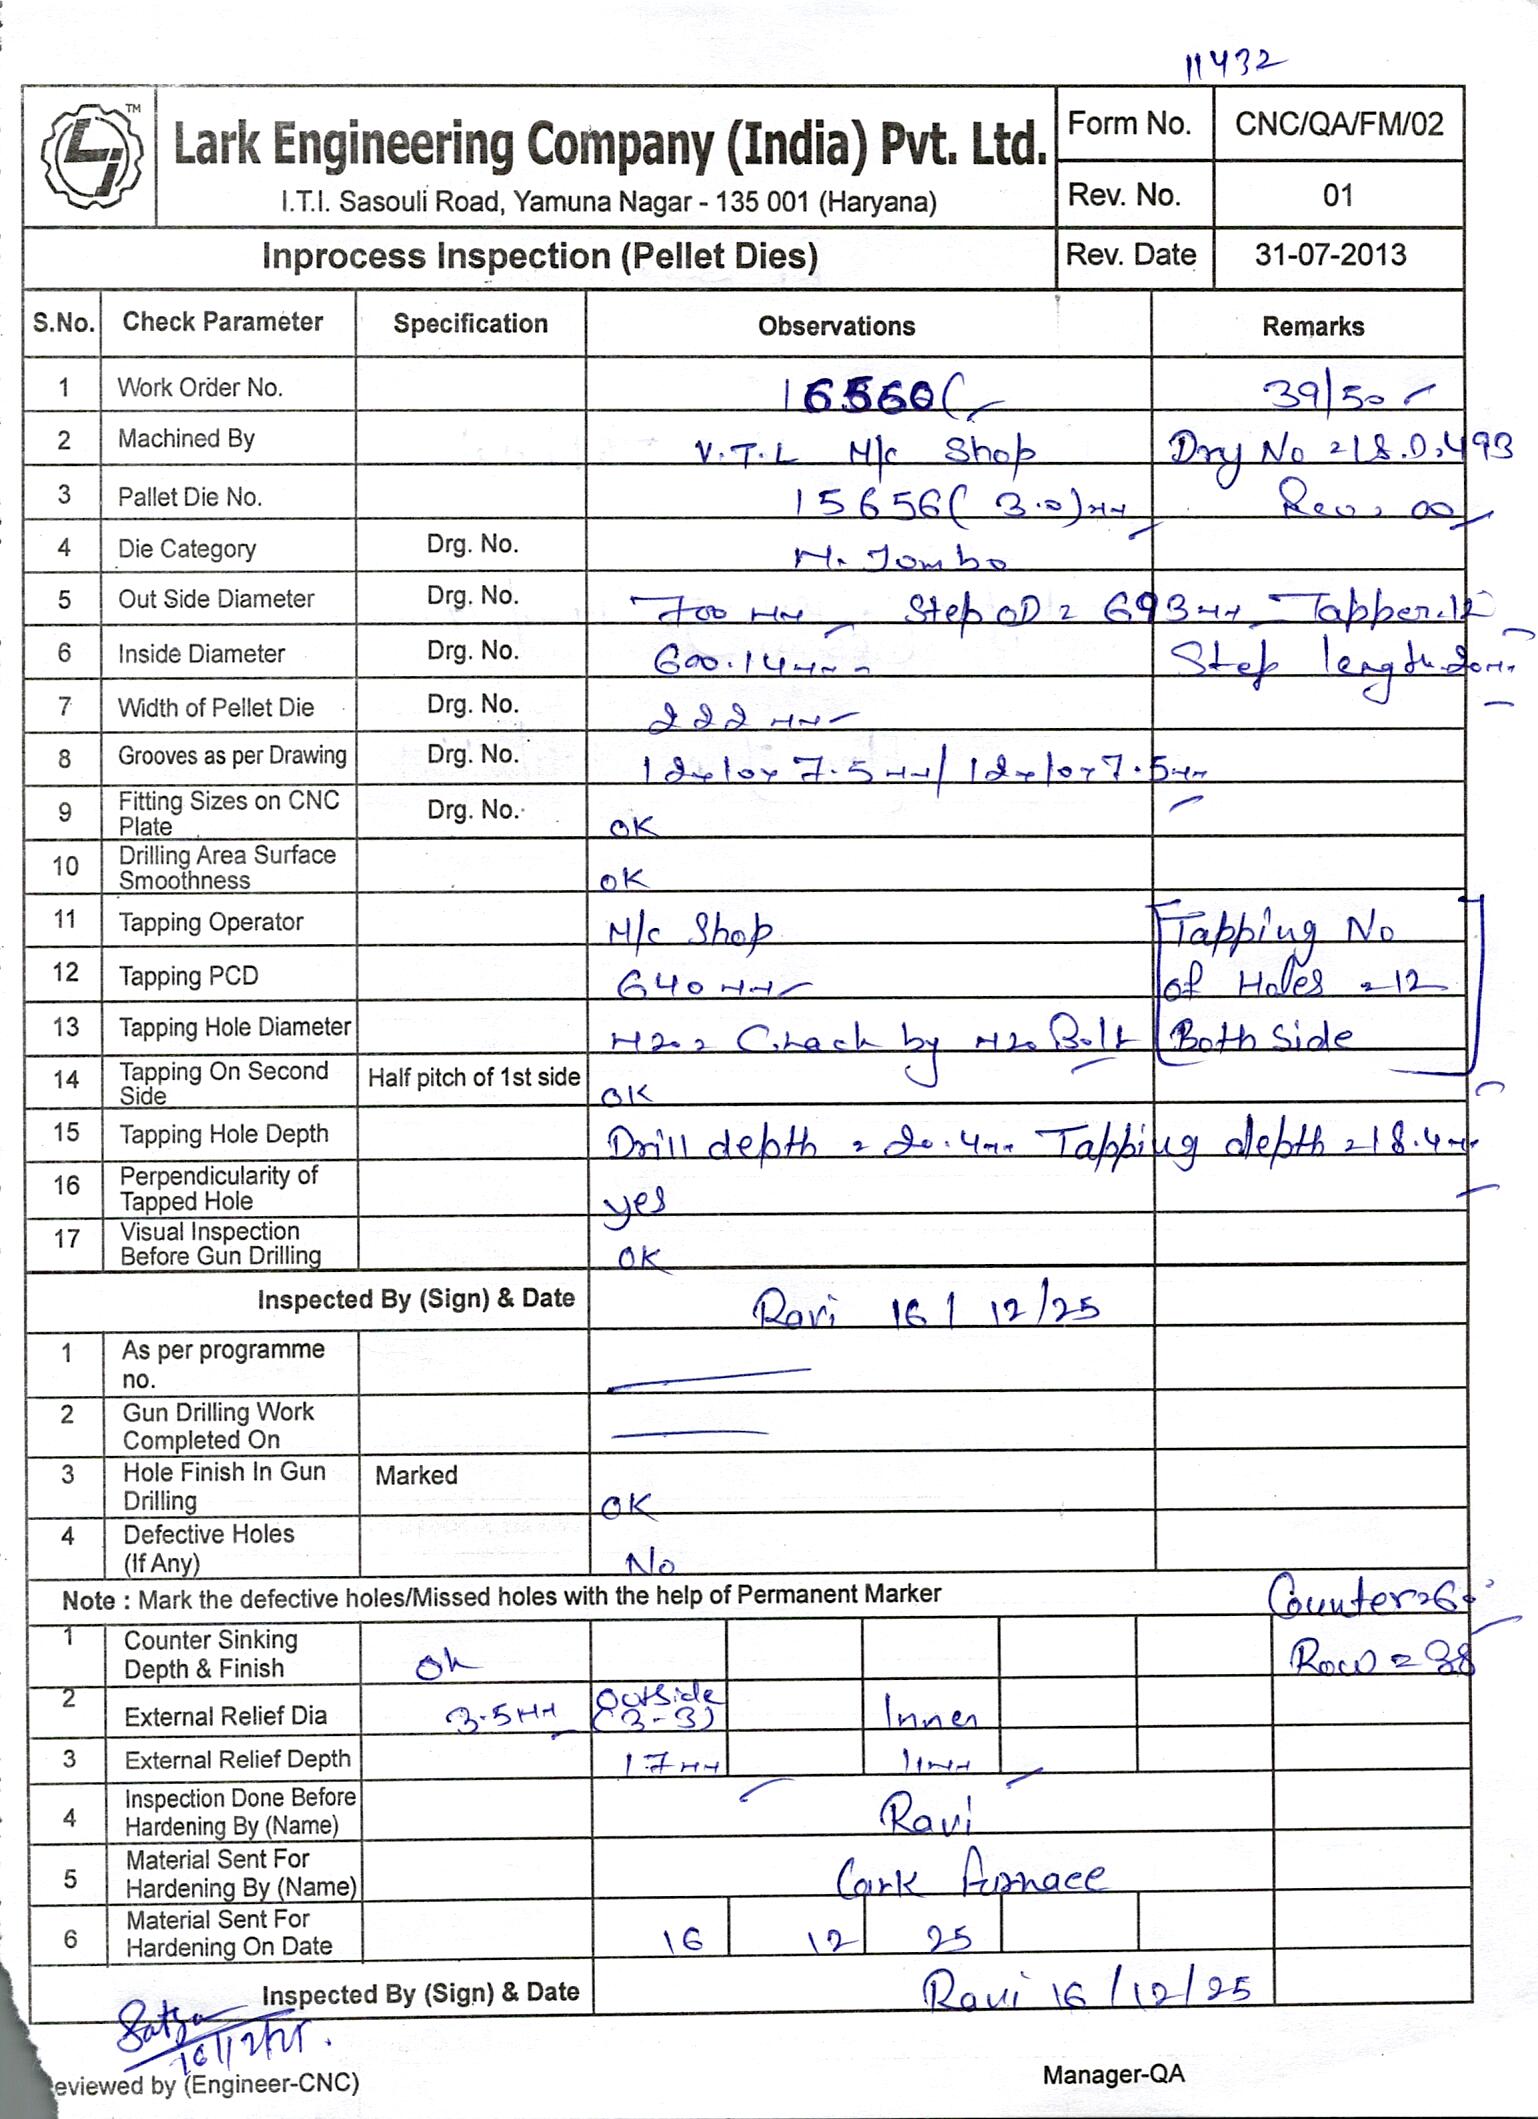 11432
Lark Engineering Company (India) Pvt. Ltd.
I.T.I. Sasouli Road, Yamuna Nagar - 135 001 (Haryana)
Form No. CNC/QA/FM/02
Rev. No. 01
Inprocess Inspection (Pellet Dies) Rev. Date 31-07-2013
S.No. Check Parameter Specification Observations Remarks
1 Work Order No. 39/50
2 Machined By V.T.L M/c Shop
3 Pallet Die No. 15656 (3.0)mm Rev. 00
4 Die Category Drg. No. M. Jombo
5 Out Side Diameter Drg. No. 700 mm Step OD = 693mm Tapper.12
6 Inside Diameter Drg. No. 600.14mm Step length.20mm
7 Width of Pellet Die Drg. No. 222 mm
8 Grooves as per Drawing Drg. No. 12x10x7.5mm/12x10x7.5mm
9 Fitting Sizes on CNC Plate Drg. No. OK
10 Drilling Area Surface Smoothness OK
11 Tapping Operator M/c Shop Tapping No
12 Tapping PCD 640mm of Holes =12
13 Tapping Hole Diameter M20 = Check by M20 Bolt Both Side
14 Tapping On Second Side Half pitch of 1st side OK
15 Tapping Hole Depth Drill depth = 20.4mm Tapping depth = 18.4mm
16 Perpendicularity of Tapped Hole yes
17 Visual Inspection Before Gun Drilling OK
Inspected By (Sign) & Date Ravi 16/12/25
1 As per programme no.
2 Gun Drilling Work Completed On
3 Hole Finish In Gun Drilling Marked OK
4 Defective Holes (If Any) No
Note : Mark the defective holes/Missed holes with the help of Permanent Marker Counter=60
1 Counter Sinking Depth & Finish Ok Row = 38
2 External Relief Dia 3.5mm Outside (3-3) Inner
3 External Relief Depth 17mm 11mm
4 Inspection Done Before Hardening By (Name) Ravi
5 Material Sent For Hardening By (Name) Lark furnace
6 Material Sent For Hardening On Date 16 12 25
Inspected By (Sign) & Date Ravi 16/12/25
16/12/25.
eviewed by (Engineer-CNC) Manager-QA